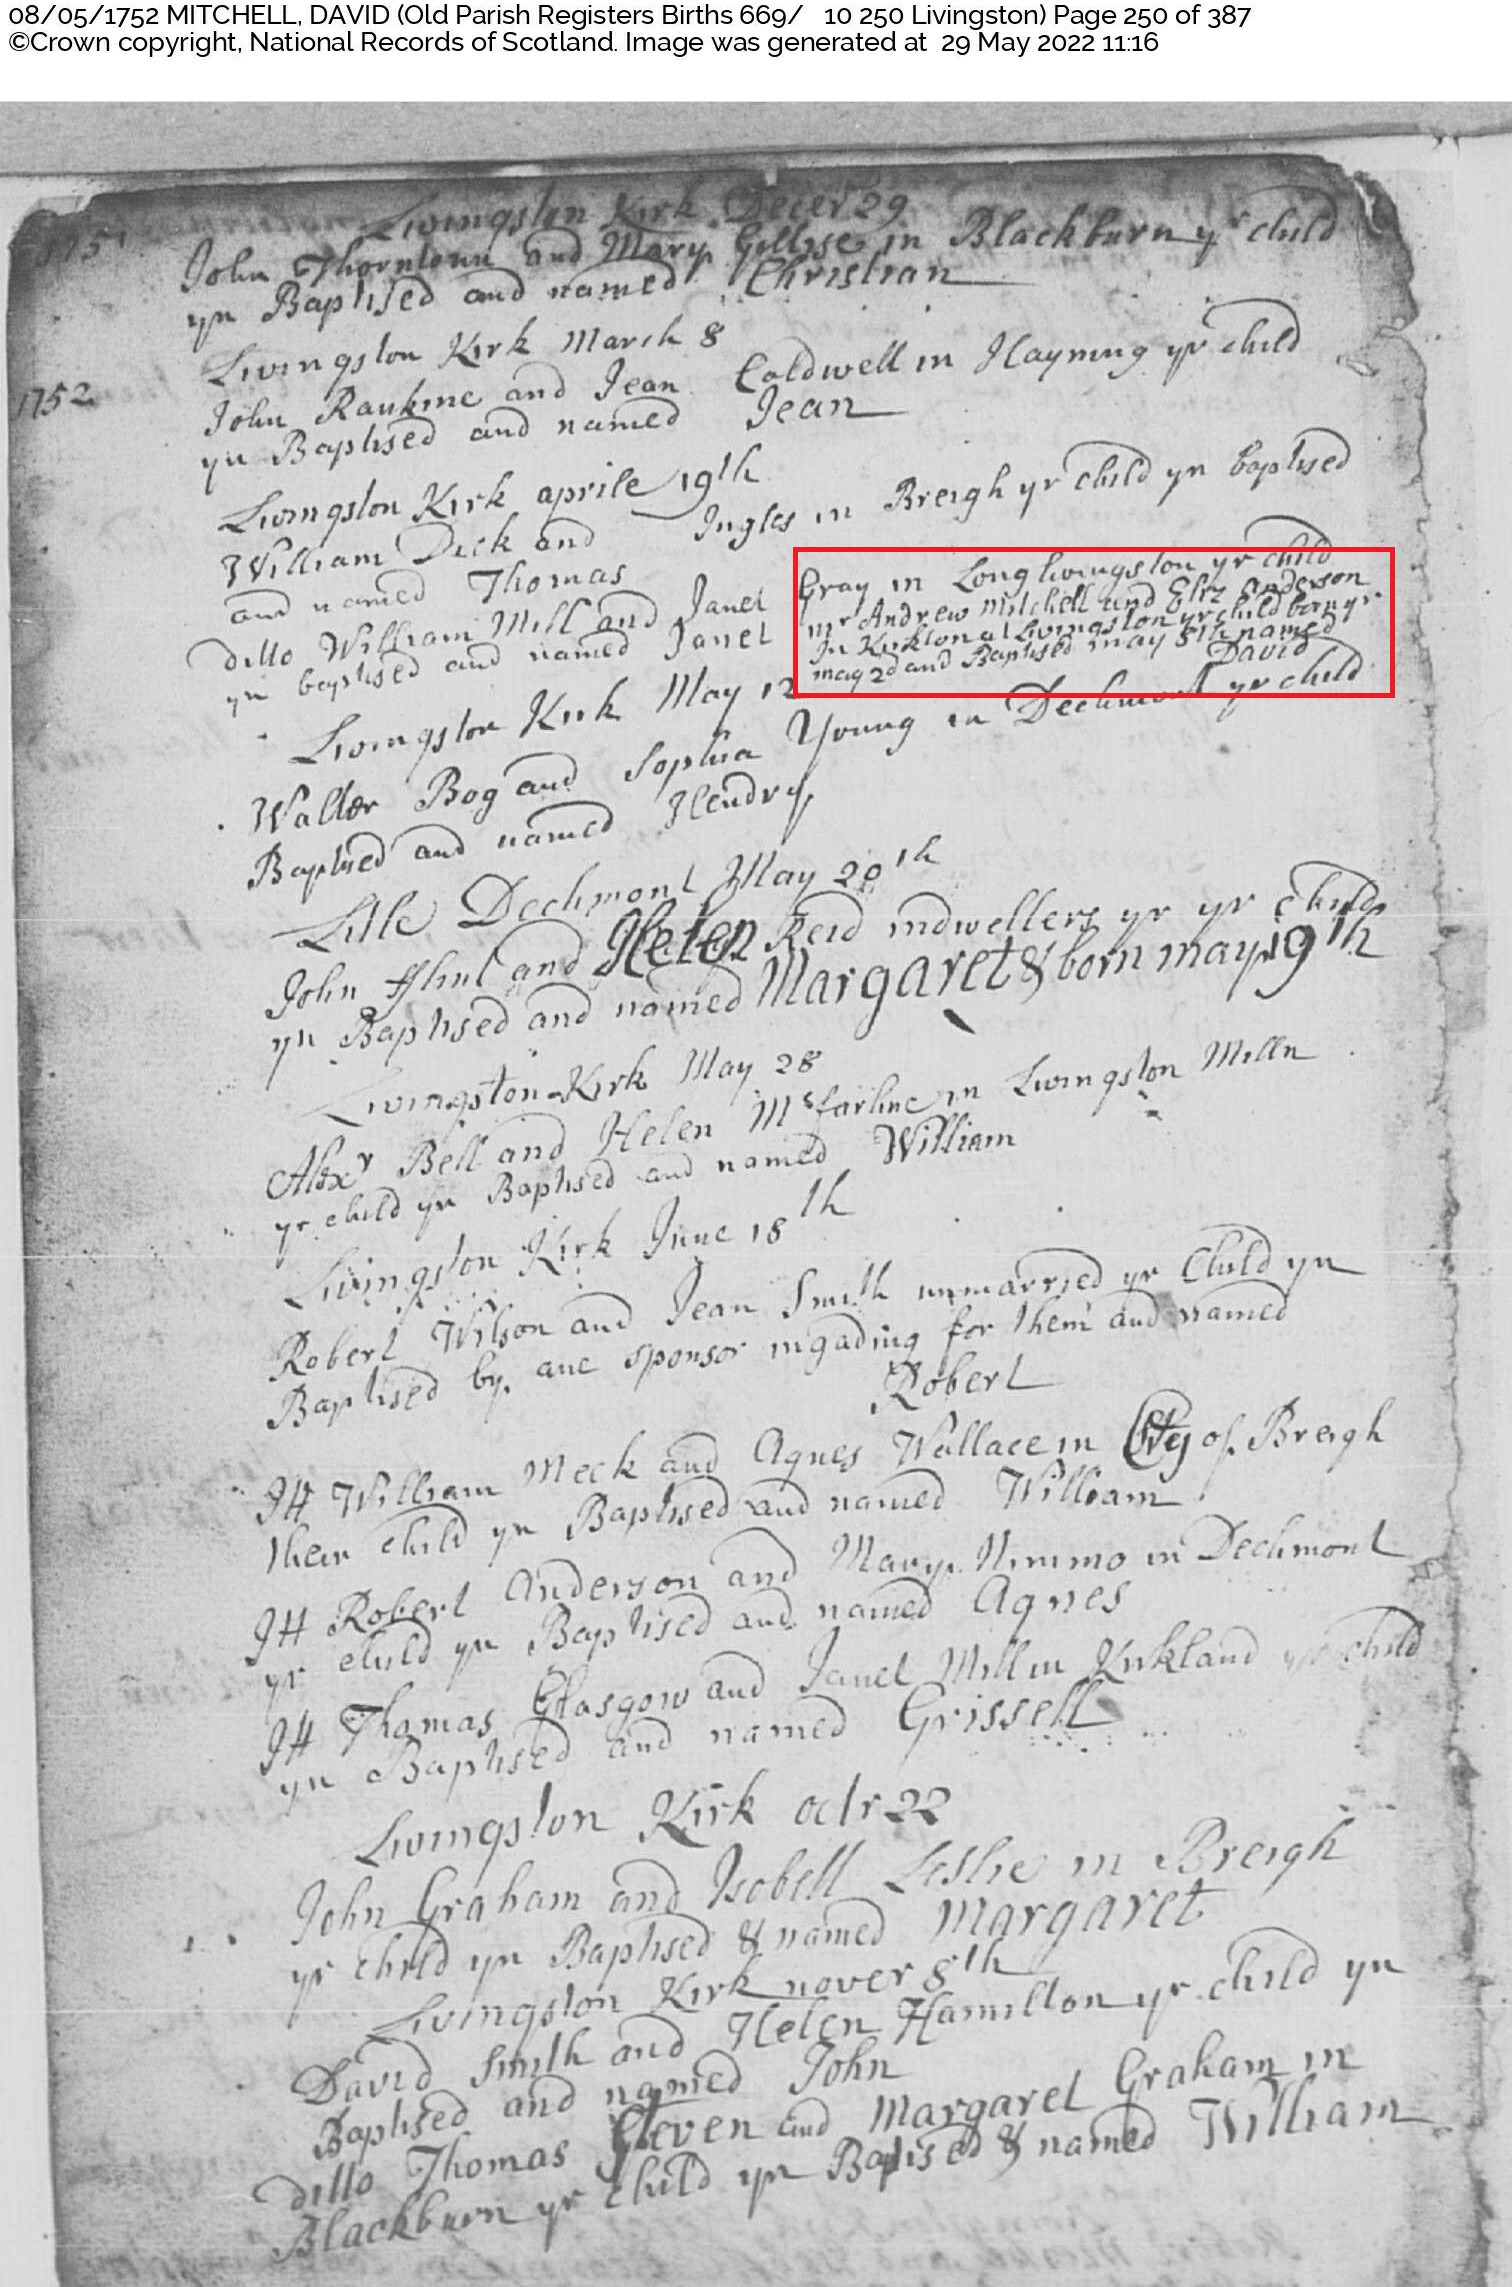 08/05/1752 MITCHELL, DAVID (Old Parish Registers Births 669/ 10 250 Livingston) Page 250 of 387
©Crown copyright, National Records of Scotland. Image was generated at 29 May 2022 11:16
Livingston Kirk Decer 29
1751
John Thorntoun and Mary Gillise in Blackburn yr child
yn Baptised and named Christian
Livingston Kirk March 8
1752
John Rankine and Jean Coldwell in Hayning yr child
yn Baptised and named Jean
Livingston Kirk aprile 19th
William Dick and Ingles in Breigh yr child yn baptised
and named Thomas
ditto William Mill and Janet Gray in Longlivingston yr child
yn baptised and named Janet
mr Andrew Mitchell and Eliz Anderson
In Kirkton at Livingston yr child born yr
may 2d and Baptised may 8th named
David
Livingston Kirk May 12
Walter Bog and Sophia Young in Dechmont yr child
Baptised and named Hendry
Litle Dechmont May 20th
John Flint and Helen Reid indwellers yr yr child
yn Baptised and named Margaret & born may 19th
Livingston Kirk May 28
Alexr Bell and Helen Mcfarline in Livingston Milln
yr child yn Baptised and named William
Livingston Kirk June 18th
Robert Wilson and Jean Smith unmarried yr Child yn
Baptised by ane sponsor ingading for them and named
Robert
It William Meek and Agnes Wallace in of Breigh
their child yn Baptised and named William
It Robert Anderson and Mary Nimmo in Dechmont
yr child yn Baptised and named Agnes
It Thomas Glasgow and Janet Mill in Kirkland yr child
yn Baptised and named Grissell
Livingston Kirk octr 22
John Graham and Isobell Leslie in Breigh
yr child yn Baptised & named Margaret
Livingston Kirk nover 8th
David Smith and Helen Hamilton yr child yn
Baptised and named John
ditto Thomas Steven and Margaret Graham in
Blackburn yr child yn Baptised & named William